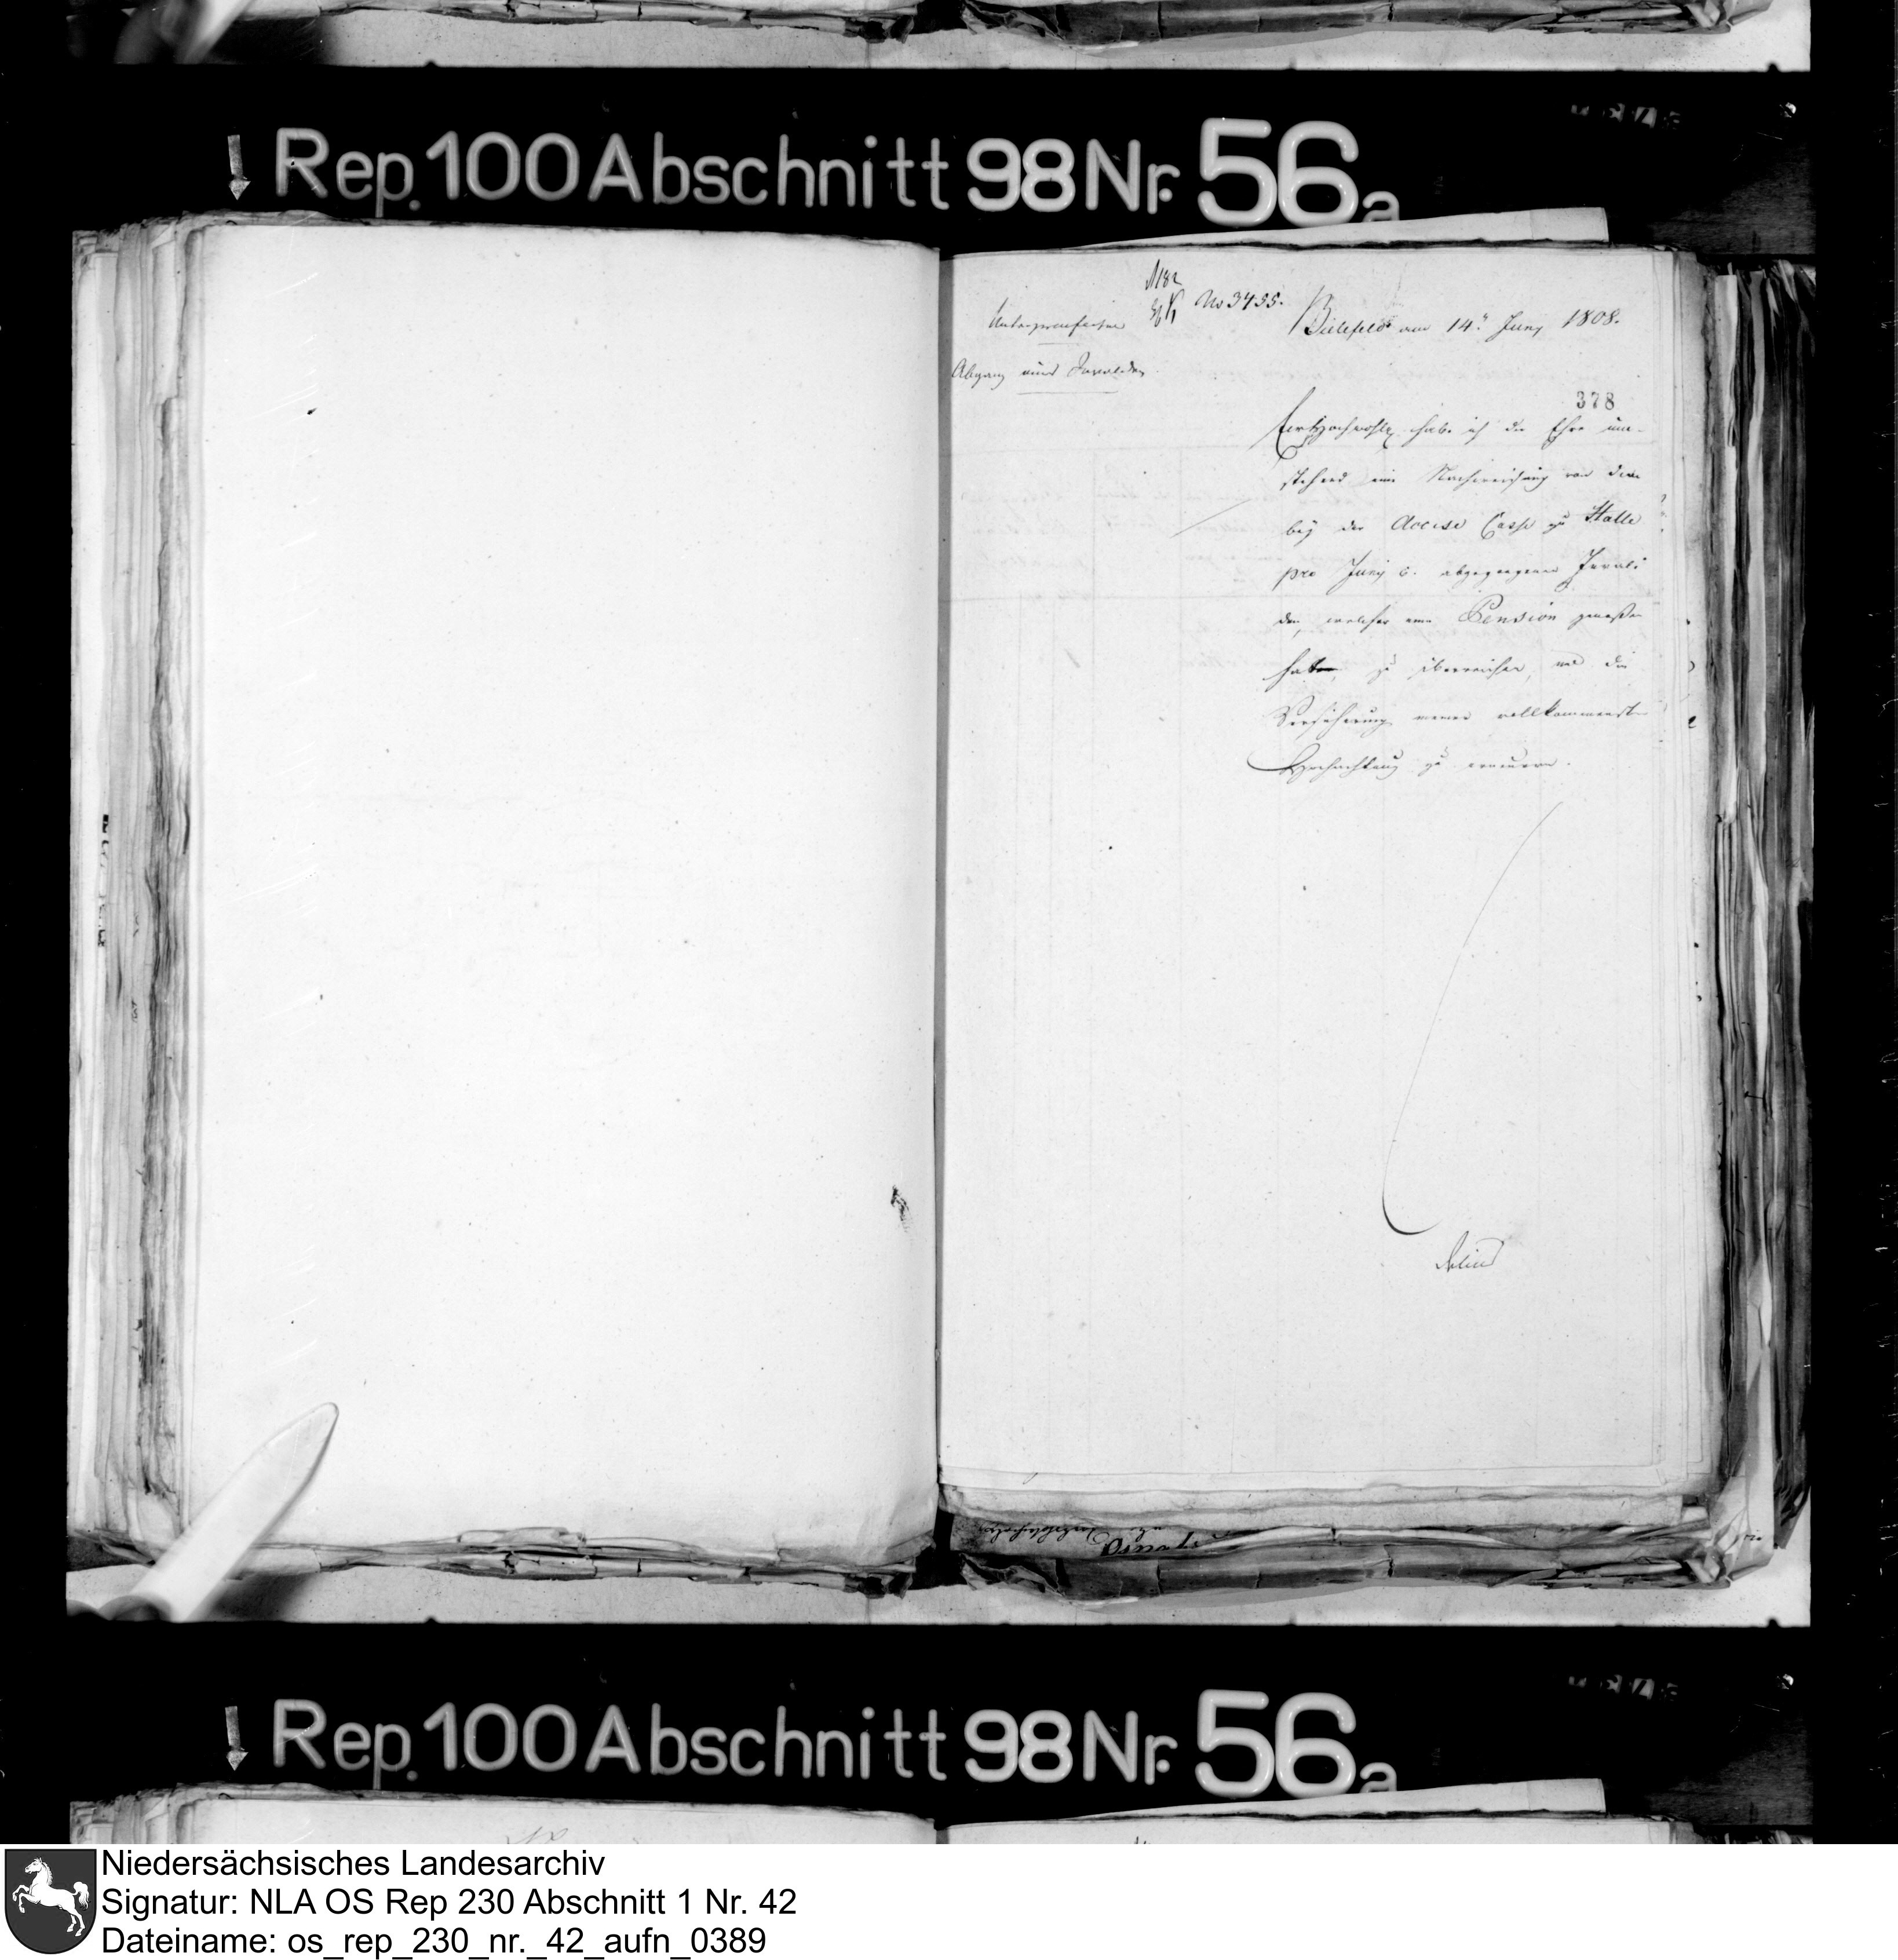 Rep. 100 Abschnitt 98 Nr. 56a
No 3455.
Bielefeld am 14. Juny 1808.
Unterpraefectur
Abgang eines Invaliden.
378
Ew Hochwohlg. habe ich die Ehre um-
stehend eine Nachweisung von dem
bey der Accise Casse zu Halle
pro Juny c. abgegangenen Invali
den, welcher eine Pension genossen
hat, zu überreichen, und die
Versicherung meiner vollkommensten
Hochachtung zu erneuern.
Rep. 100 Abschnitt 98 Nr. 56a
Niedersächsisches Landesarchiv
Signatur: NLA OS Rep 230 Abschnitt 1 Nr. 42
Dateiname: os_rep_230_nr._42_aufn_0389